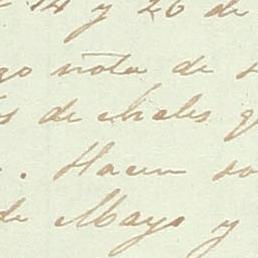 14 y 26 de
go nota de
s de Males q
. Hacen so
de Mayo y